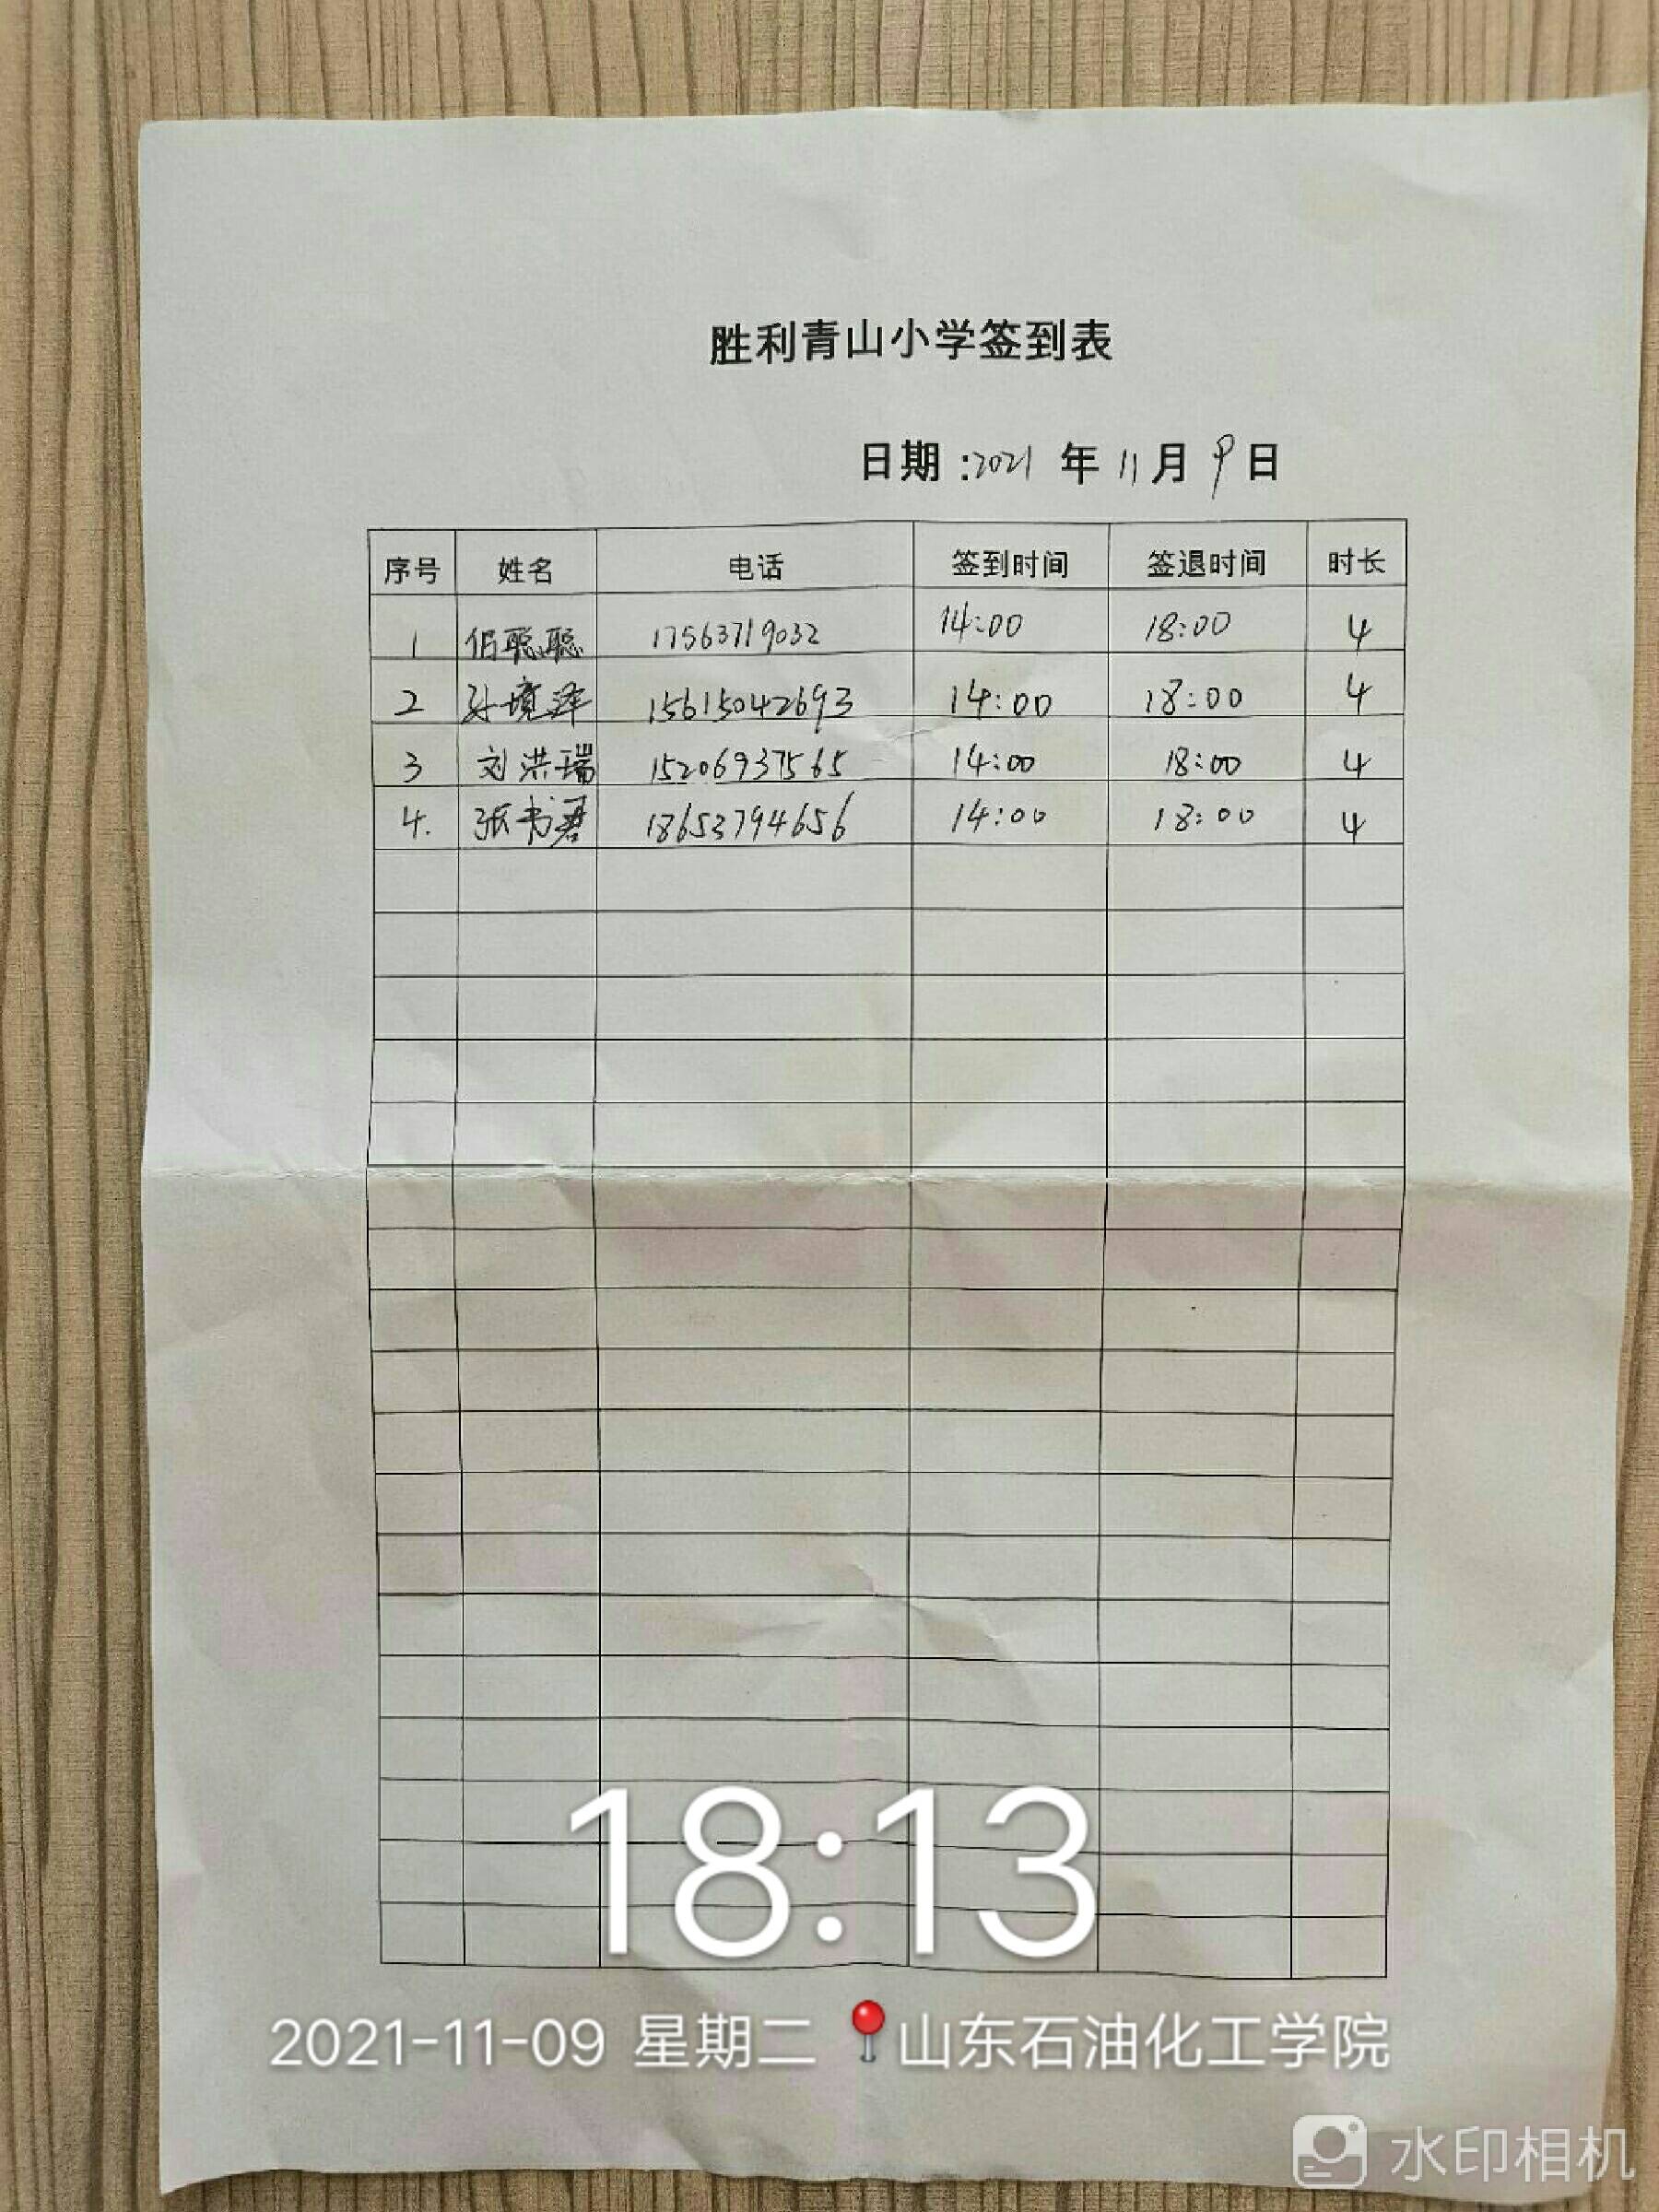 胜利青山小学签到表
日期:2021 年 11 月 9 日
序号 姓名 电话 签到时间 签退时间 时长
1 伯聪聪 17563719032 14:00 18:00 4
2 孙境泽 15615042693 14:00 18:00 4
3 刘洪瑞 15206937565 14:00 18:00 4
4. 张书君 18653794656 14:00 18:00 4
18:13
2021-11-09 星期二 山东石油化工学院
水印相机